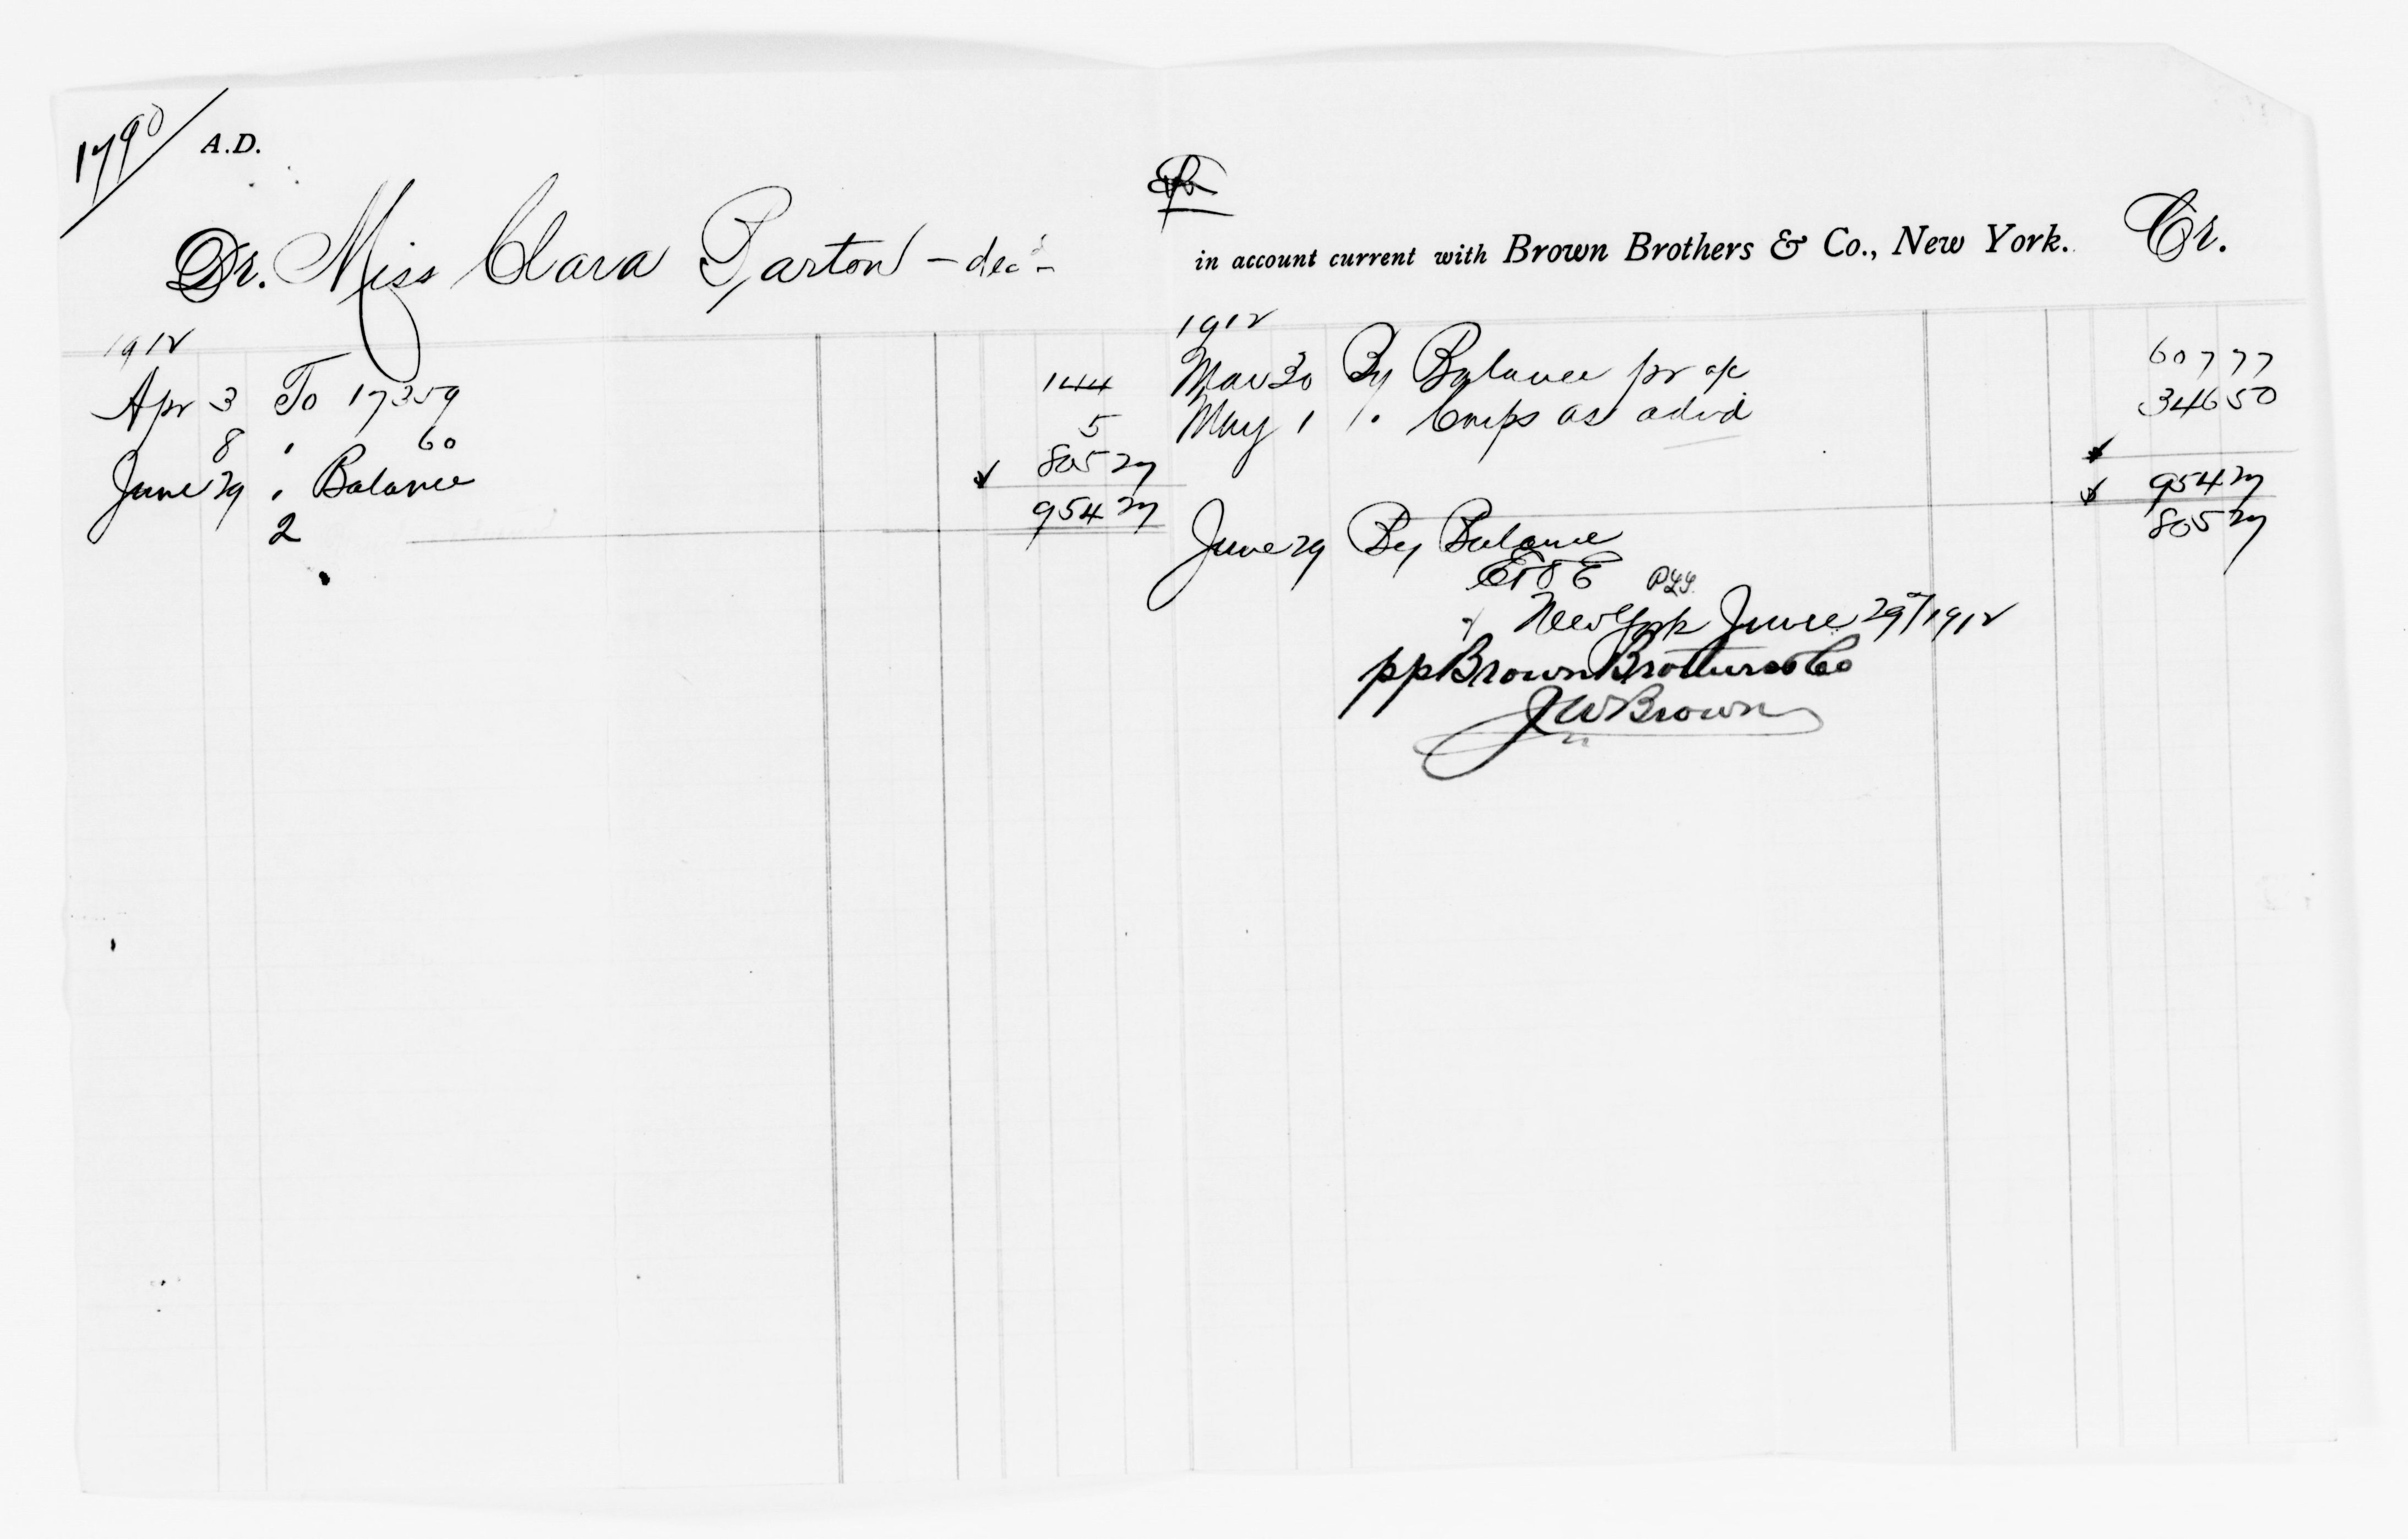 1790
A.D.
Dr. Miss Clara Barton - dec'd -
in account current with Brown Brothers & Co., New York. Cr.
1912
Apr 3 To 17359 144
8 " 60 5
June 29 " Balance 805 27
954 27
2
1912
Mar 30 By Balance pr a/c 607 77
May 1 " Cnps as advd 346 50
954 27
June 29 By Balance 805 27
E & O E
New York June 29th/1912
pp Brown Brothers & Co
J W Brown